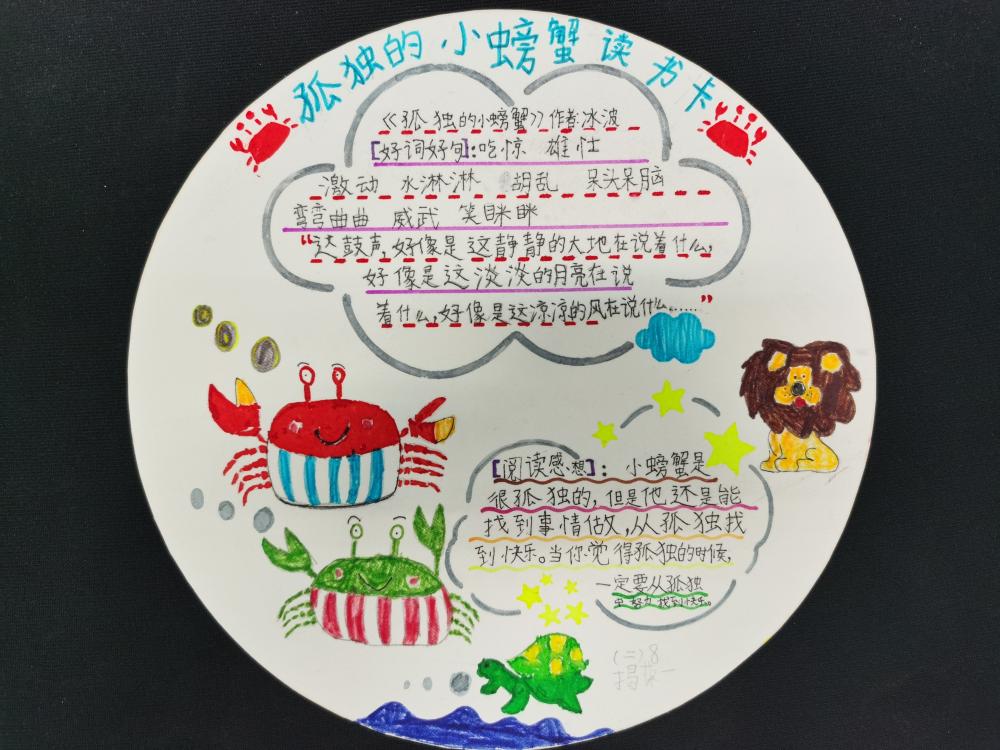 孤独的小螃蟹读书卡
《孤独的小螃蟹》作者:冰波
[好词好句]:吃惊 雄壮
激动 水淋淋 胡乱 呆头呆脑
弯弯曲曲 威武 笑眯眯
“这鼓声,好像是这静静的大地在说着什么,
好像是这淡淡的月亮在说
着什么,好像是这凉凉的风在说什么……”
[阅读感想]:小螃蟹是
很孤独的,但是他还是能
找到事情做,从孤独找
到快乐。当你觉得孤独的时候,
一定要从孤独
中努力找到快乐。
(二)8